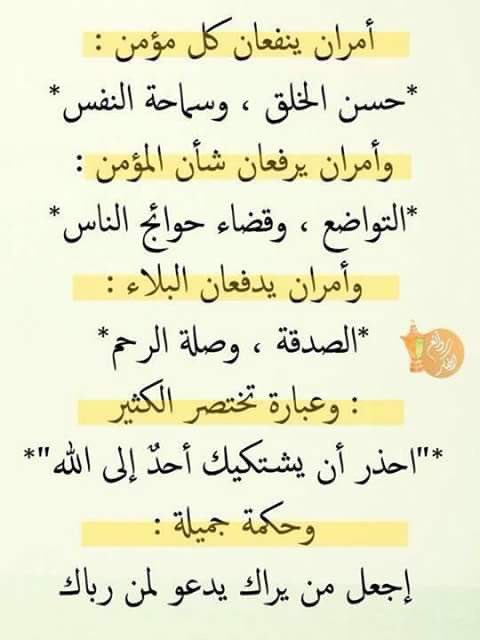 أمران ينفعان كل مؤمن :
*حسن الخلق ، وسماحة النفس*
وأمران يرفعان شأن المؤمن :
*التواضع ، وقضاء حوائج الناس*
وأمران يدفعان البلاء :
*الصدقة ، وصلة الرحم*
: وعبارة تختصر الكثير
*"احذر أن يشتكيك أحدٌ إلى الله"*
وحكمة جميلة :
إجعل من يراك يدعو لمن رباك